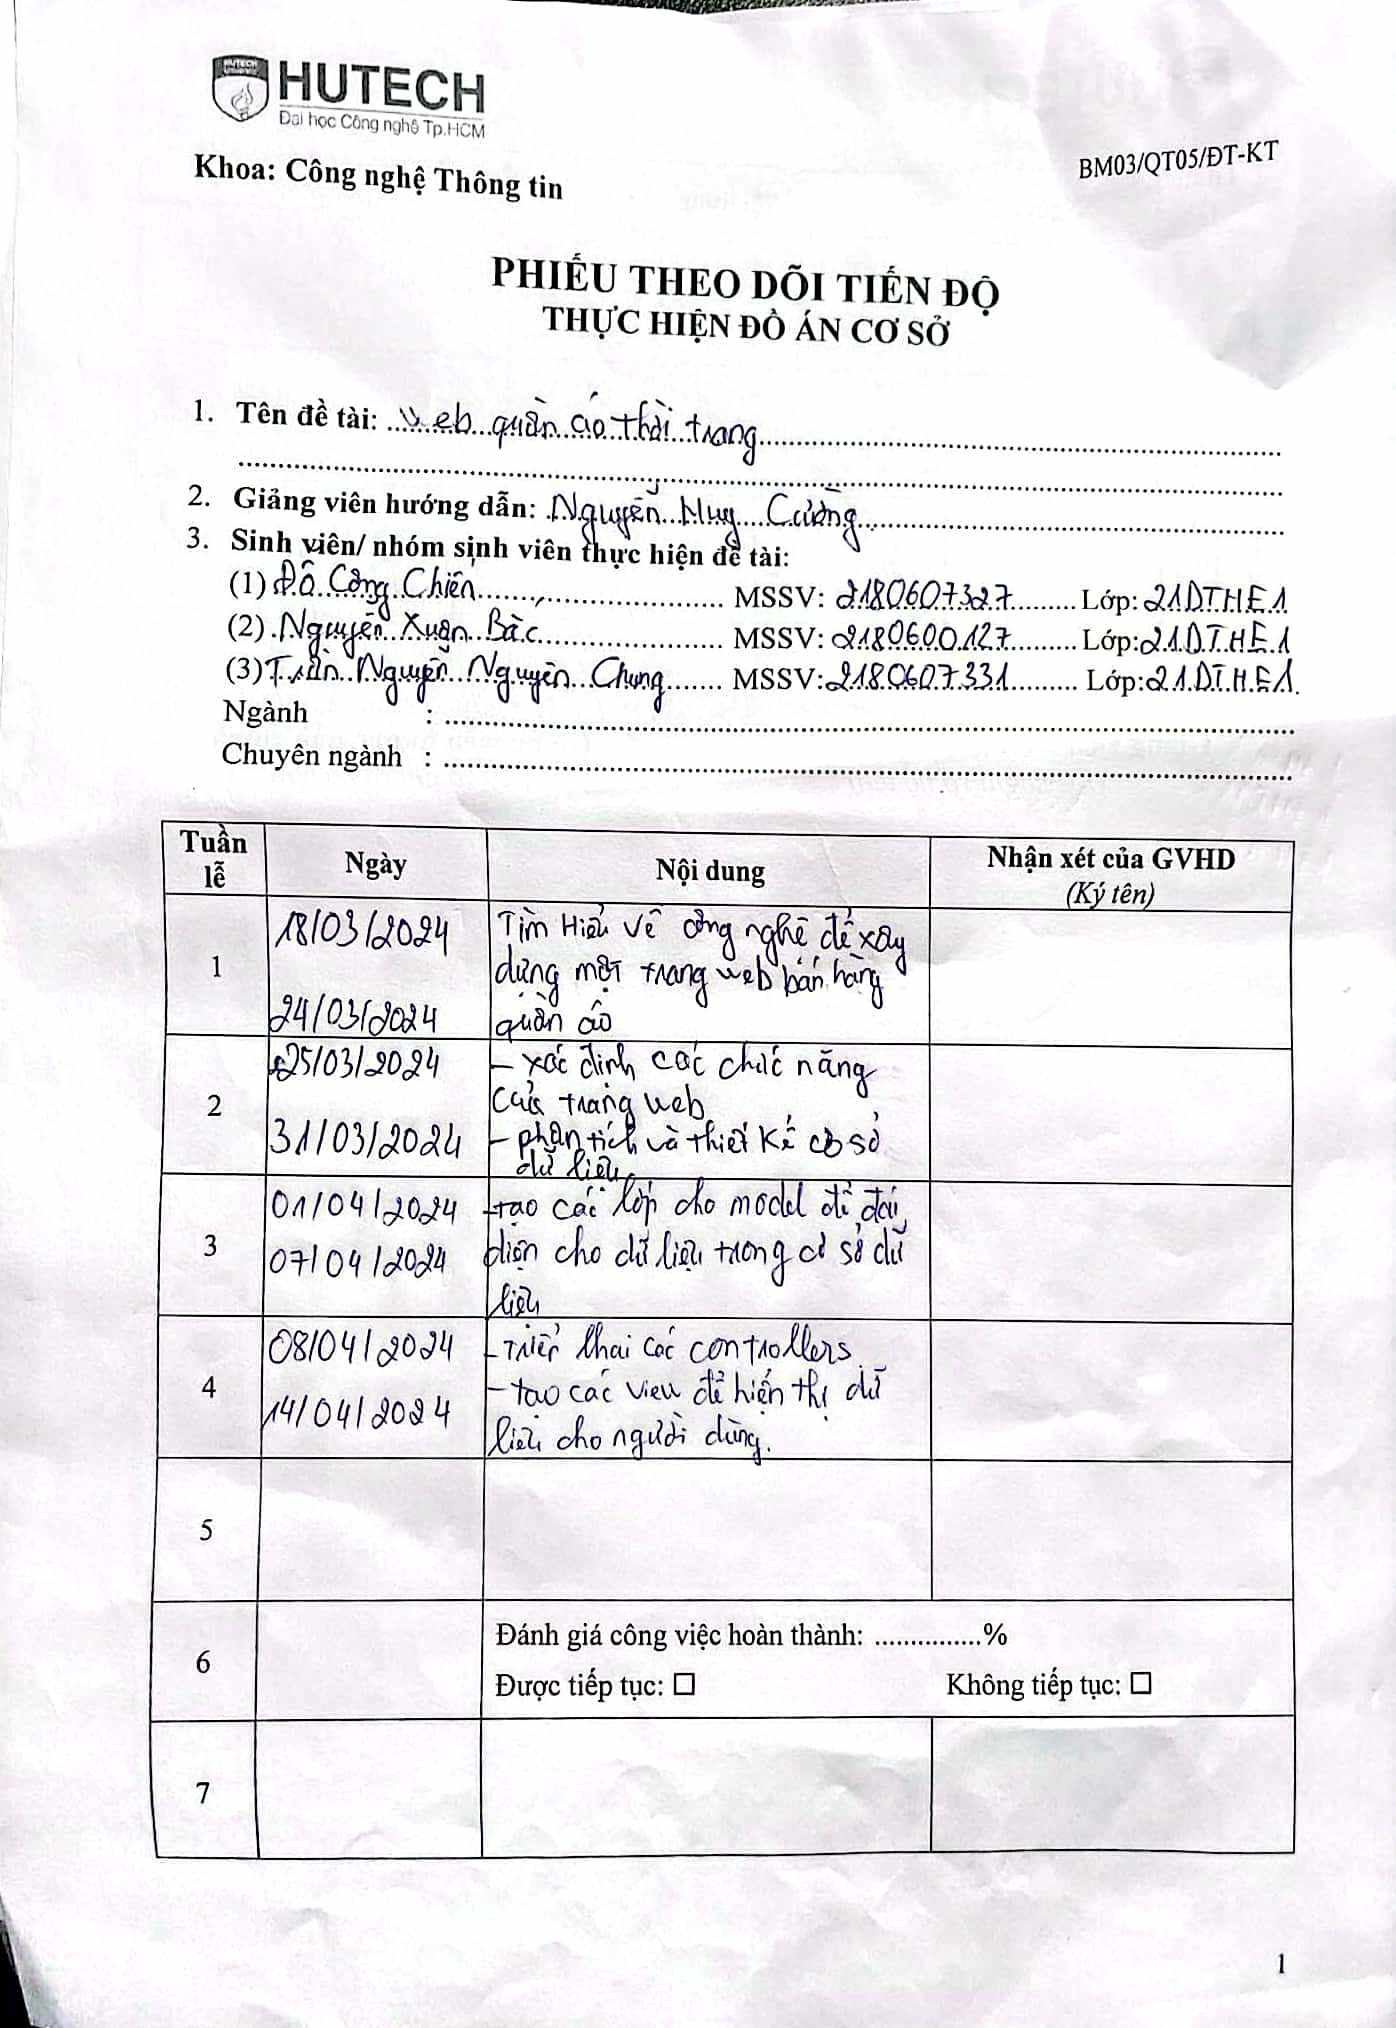 HUTECH
Đại học Công nghệ Tp.HCM
Khoa: Công nghệ Thông tin
BM03/QT05/ĐT-KT
PHIẾU THEO DÕI TIẾN ĐỘ
THỰC HIỆN ĐỒ ÁN CƠ SỞ
1. Tên đề tài: Web quần áo thời trang
2. Giảng viên hướng dẫn: Nguyễn Huy Cường
3. Sinh viên/ nhóm sinh viên thực hiện đề tài:
(1) Đỗ Công Chiến MSSV: 2180607327 Lớp: 21DTHE1
(2) Nguyễn Xuân Bắc MSSV: 2180600127 Lớp: 21DTHE1
(3) Trần Nguyễn Nguyên Chung MSSV: 2180607331 Lớp: 21DTHE1
Ngành :
Chuyên ngành :
Tuần lễ Ngày Nội dung Nhận xét của GVHD
(Ký tên)
1 18/03/2024 Tìm Hiểu về công nghệ để xây
dựng một trang web bán hàng
24/03/2024 quần áo
2 25/03/2024 - xác định các chức năng
của trang web
31/03/2024 - phân tích và thiết kế cơ sở
dữ liệu
3 01/04/2024 - tạo các lớp cho model để đại
07/04/2024 diện cho dữ liệu trong cơ sở dữ
liệu
4 08/04/2024 - Triển khai các controllers
- tạo các view để hiển thị dữ
14/04/2024 liệu cho người dùng.
5
6 Đánh giá công việc hoàn thành: ...............%
Được tiếp tục: ☐ Không tiếp tục: ☐
7
1